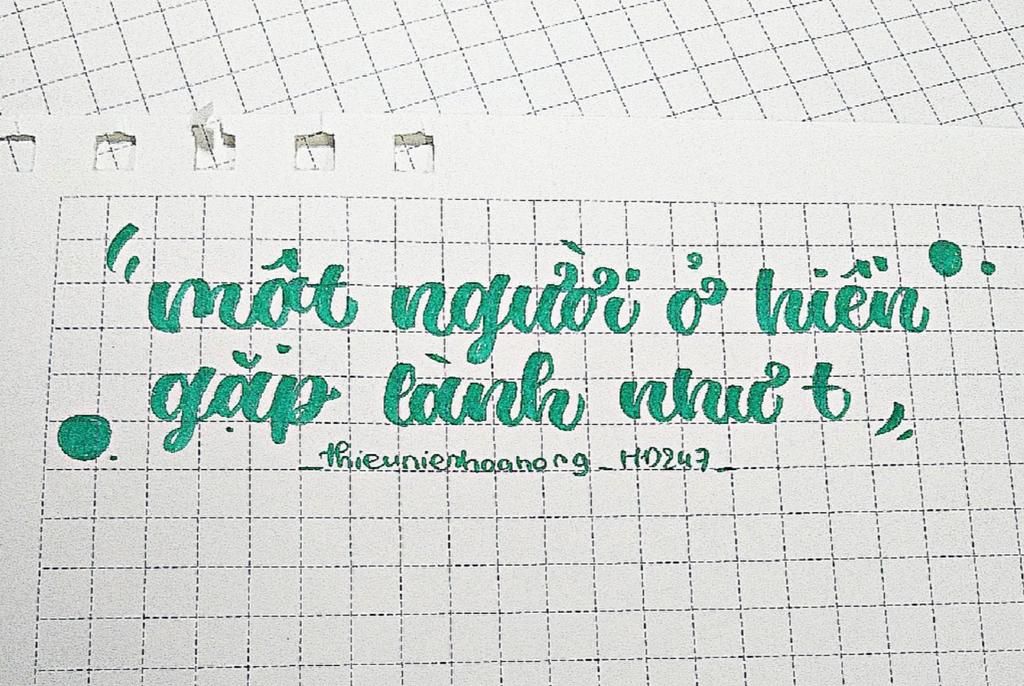 “một người ở hiền
gặp lành như t”
_thieunienhoahong_HD247_